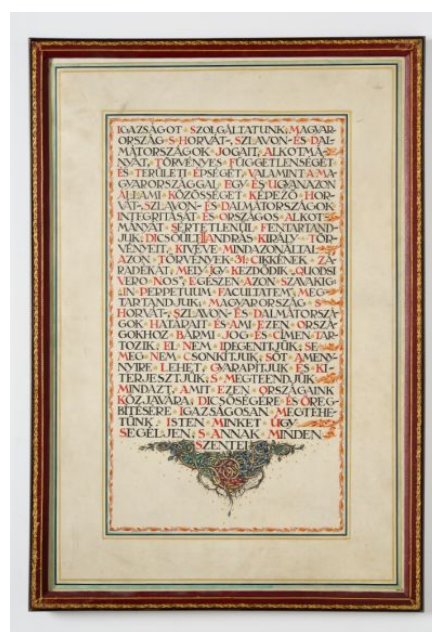 IGAZSÁGOT SZOLGÁLTATUNK; MAGYAR-
ORSZÁG S HORVÁT-, SZLAVON- ÉS DAL-
MÁTORSZÁGOK JOGAIT, ALKOTMÁ-
NYÁT, TÖRVÉNYES FÜGGETLENSÉGÉT
ÉS TERÜLETI ÉPSÉGÉT, VALAMINT A MA-
GYARORSZÁGGAL EGY ÉS UGYANAZON
ÁLLAMI KÖZÖSSÉGET KÉPEZŐ HOR-
VÁT-, SZLAVON- ÉS DALMÁTORSZÁGOK
INTEGRITÁSÁT ÉS ORSZÁGOS ALKOT-
MÁNYÁT SÉRTETLENÜL FENTARTAND-
JUK; DICSŐÜLT II ANDRÁS KIRÁLY TÖR-
VÉNYEIT, KIVÉVE MINDAZONÁLTAL
AZON TÖRVÉNYEK 31. CIKKÉNEK ZÁ-
RADÉKÁT, MELY ÍGY KEZDŐDIK „QUODSI
VERO NOS", EGÉSZEN AZON SZAVAKIG:
„IN PERPETUUM FACULTATEM", MEG-
TARTANDJUK; MAGYARORSZÁG S
HORVÁT-, SZLAVON- ÉS DALMÁTORSZÁ-
GOK HATÁRAIT ÉS AMI EZEN ORSZÁ-
GOKHOZ BÁRMI JOG ÉS CÍMEN TAR-
TOZIK, EL NEM IDEGENÍTJÜK, SE
MEG NEM CSONKÍTJUK, SŐT AMENY-
NYIRE LEHET, GYARAPÍTJUK ÉS KI-
TERJESZTJÜK, S MEGTEENDJÜK
MINDAZT, AMIT EZEN ORSZÁGAINK
KÖZJAVÁRA, DICSŐSÉGÉRE ÉS ÖREG-
BÍTÉSÉRE IGAZSÁGOSAN MEGTEHE-
TÜNK. ISTEN MINKET ÚGY
SEGÉLJEN, S ANNAK MINDEN
SZENTEI